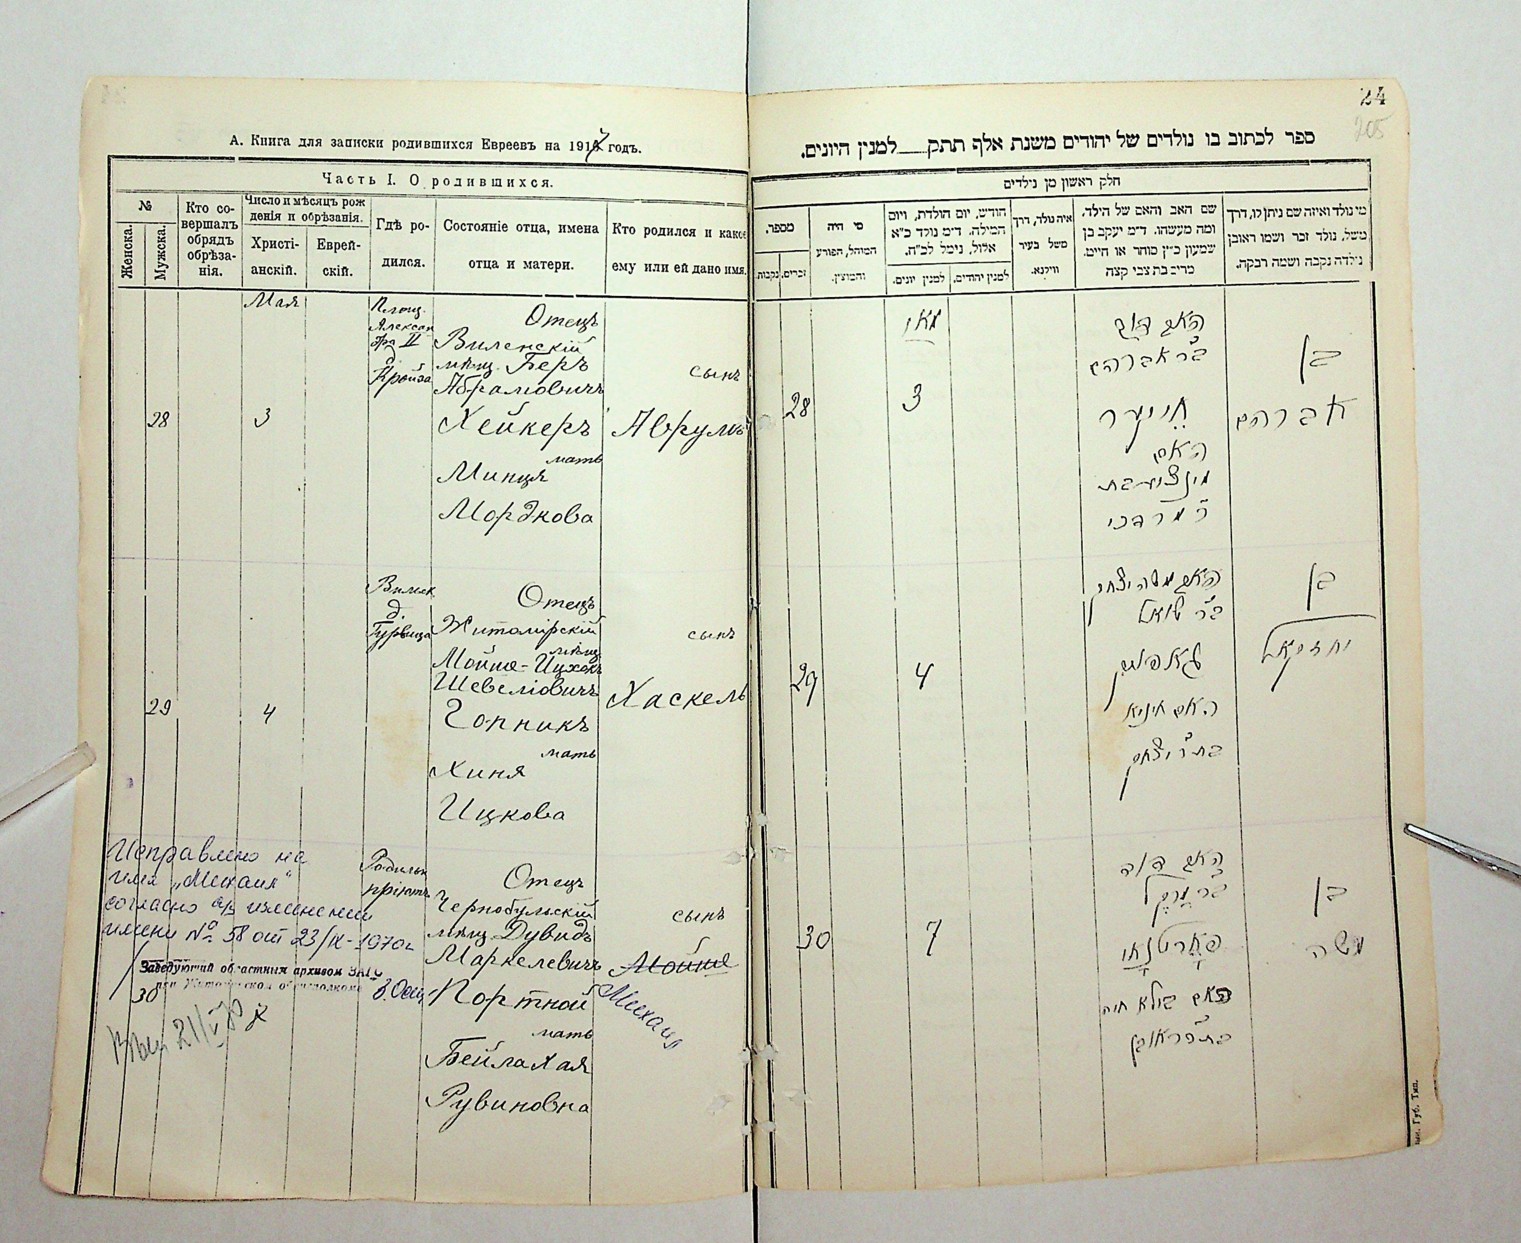 24
205
А. Книга для записки родившихся Евреевъ на 1917 годъ.
Часть I. О родившихся.
№
Женска.
Мужска.
Кто совершалъ обрядъ обрѣзанія.
Число и мѣсяцъ рожденія и обрѣзанія.
Христіанскій.
Еврейскій.
Гдѣ родился.
Состояніе отца, имена отца и матери.
Кто родился и какое ему или ей дано имя.
Мая
28
3
Площ.
Алексан
дра II
д.
Кройза
Отецъ
Виленскій
мѣщ. Беръ
Абрамовичъ
Хейкеръ
мать
Минця
Мордкова
сынъ
Аврумъ
29
4
Вильск
д.
Гурвица
Отецъ
Житомірскій
мѣщ.
Мойше-Ицхокъ
Шевеліовичъ
Гопникъ
мать
Хиня
Ицкова
сынъ
Хаскель
30
Родильн
пріютъ
Отецъ
Чернобульскій
мѣщ Дувидъ
Маркелевичъ
Портной
мать
Бейла Хая
Рувиновна
сынъ
Мойше
Михаил
Исправлено на
имя „Михаил"
согласно а/з изменении
имени № 58 от 23/IX-1970г
Заведующий областным архивом ЗАГС
21/V 70
ספר לכתוב בו נולדים של יהודים משנת אלף תתק למנין היונים.
חלק ראשון מן נולדים
מספר.
זכרים.
נקבות.
מי היה המוהל, הפורע והמוצץ.
חודש, יום הולדת, ויום המילה. ד״מ נולד כ״א אלול, נימל לכ״ח.
למנין יונים.
למנין יהודים.
איה נולד, דרך משל בעיר ווילנא.
שם האב והאם של הילד, ומה מעשהו. ד״מ יעקב בן שמעון כ״ץ סוחר או חייט. מריב בת צבי קצה
מי נולד ואיזה שם ניתן לו, דרך משל, נולד זכר ושמו ראובן נולדה נקבה ושמה רבקה.
28
מאי
3
האב דוב
ב״ר אברהם
חייקער
האם
מינציע בת
ר׳ מרדכי
בן
אברהם
29
4
האב משה יצחק
ב״ר שואל
גאפניק
האם חיניא
בת ר׳ יצחק
בן
יחזקאל
30
7
האב דוד
ב״ר מרקל
פארטנאי
האם ביילא חיה
בת ר׳ ראובן
בן
משה
Губ. Тип.